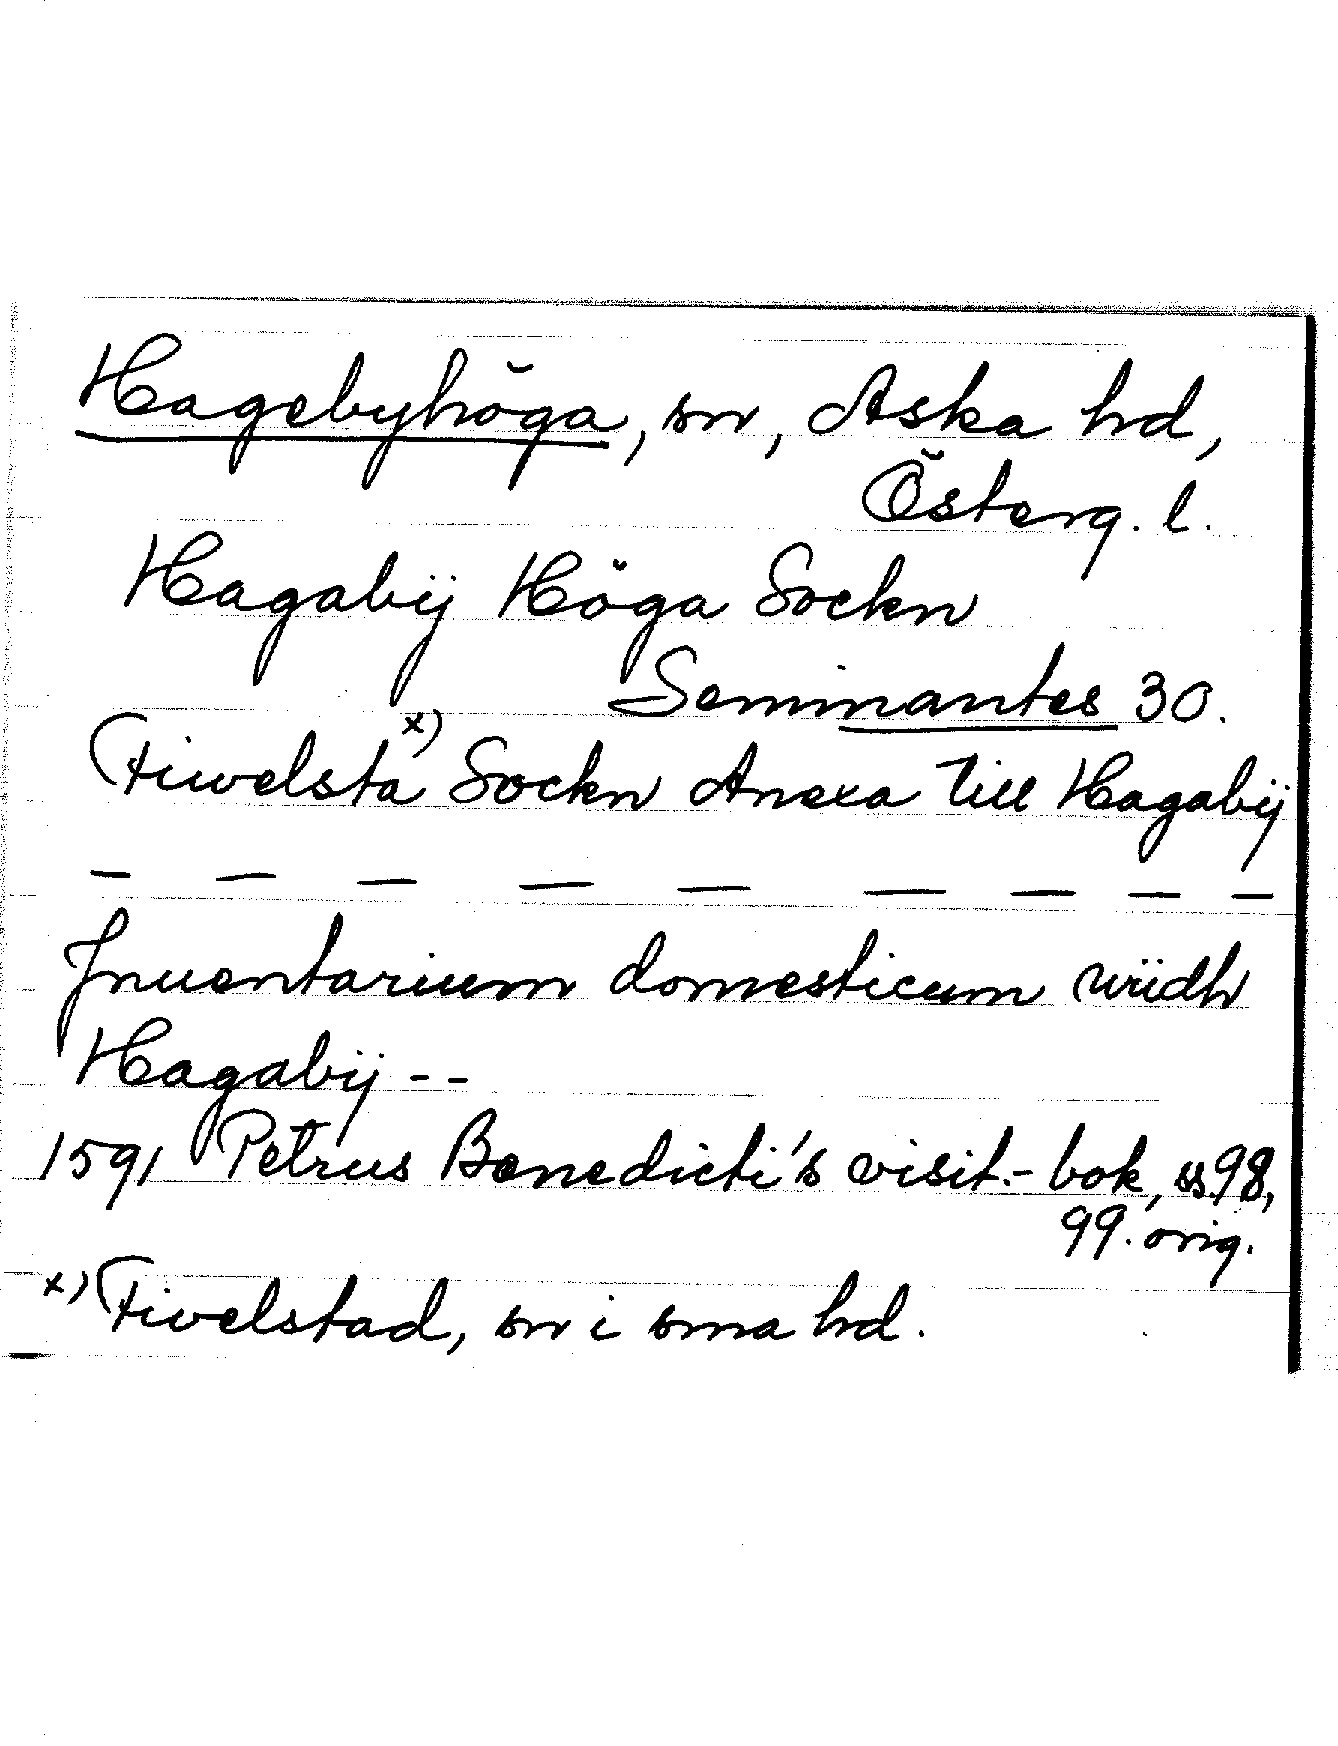 Hagebyhöga, sn, Aska hd,
Österg. l.
Hagabij Höga Sockn
Seminantes 30.
Fiwelsta x) Sockn Anexa till Hagabij
— — — — — — — — —
Inuentarium domesticum widh
Hagabij --
1591 Petrus Benedicti's visit.-bok, ss. 98,
99. orig.
x) Fivelstad, sn i sma hd.